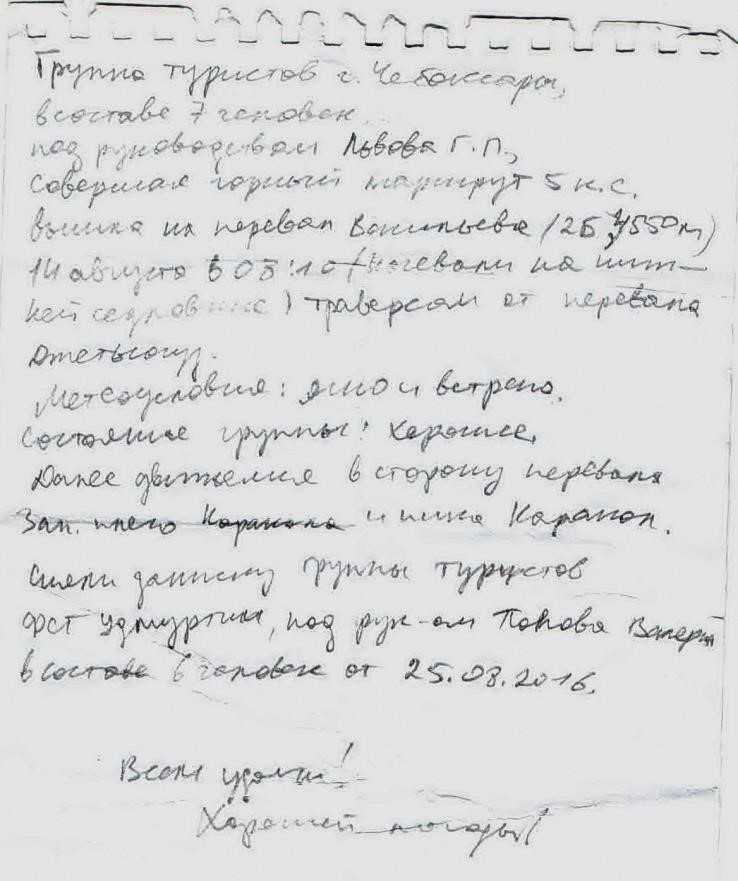 Группа туристов г. Чебоксары,
в составе 7 человек
под руководством Львова Г.П.,
совершая горный маршрут 5 к.с.
вышла на перевал Васильева (2Б, 4550 м)
14 августа в 08:10 (ночевали на ниж-
ней седловине) траверсом от перевала
Джетыогуз.
Метеоусловия: ясно и ветрено.
Состояние группы: хорошее.
Далее движемся в сторону перевала
Зап. плечо Каракола и пика Каракол.
Сняли записку группы туристов
ФСТ Удмуртии, под рук-ом Попова Валерия
в составе 6 человек от 25.08.2016.
Всем удачи!
Хорошей погоды!